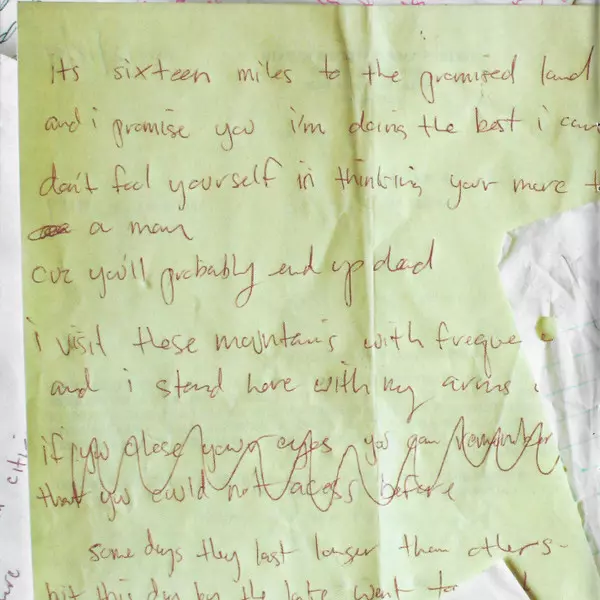 its sixteen miles to the promised land
and i promise you i'm doing the best i can
don't fool yourself in thinking your more t
a man
cuz you'll probably end up dead
i visit these mountains with freque
and i stand here with my arms
if you close your eyes you can remember
that you could not access before
some days they last longer than others
but this day by the lake went to